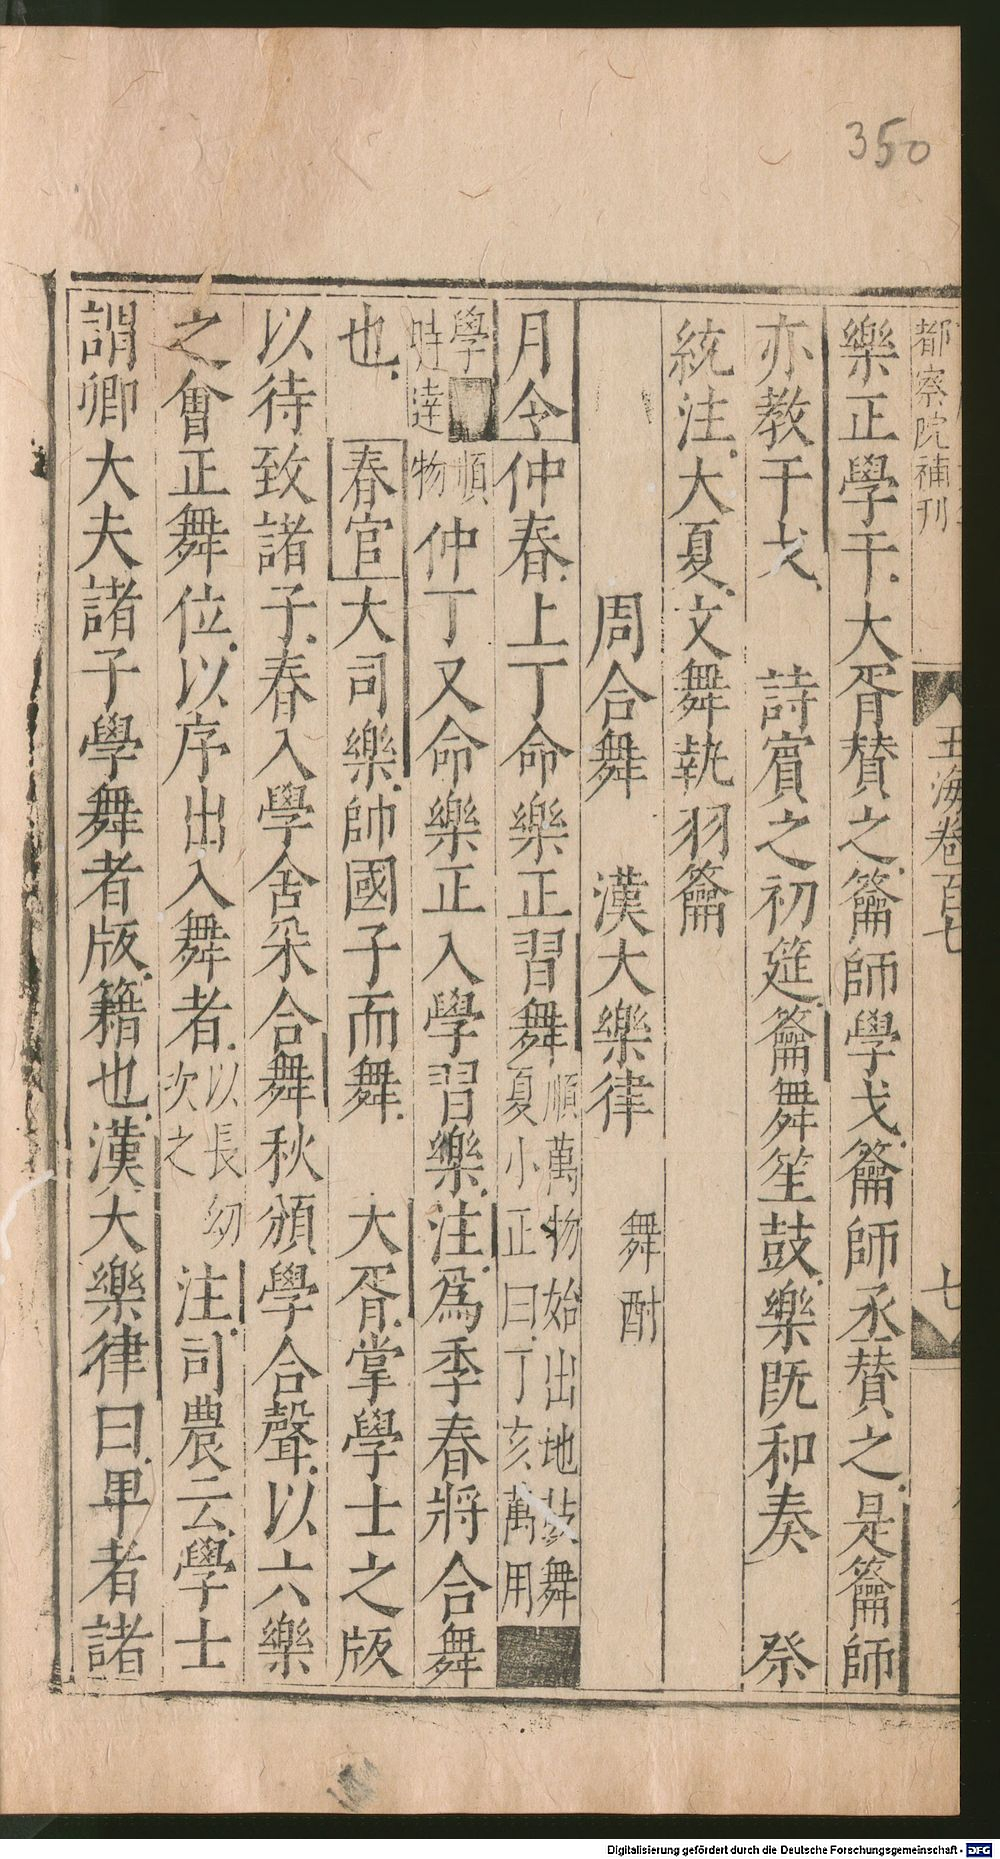 350
都察院補刊
玉海卷百七
七
樂正學干大胥賛之籥師學戈籥師丞賛之是籥師
亦教干戈 詩賔之初筵籥舞笙鼓樂既和奏 祭
統注大夏文舞執羽籥
周合舞 漢大樂律 舞酎
月令仲春上丁命樂正習舞順萬物始出地鼓舞
夏小正曰丁亥萬用
學 順
時達物仲丁又命樂正入學習樂注爲季春將合舞
也 春官大司樂帥國子而舞 大胥掌學士之版
以待致諸子春入學舍采合舞秋頒學合聲以六樂
之會正舞位以序出入舞者以長幼
次之注司農云學士
謂卿大夫諸子學舞者版籍也漢大樂律曰卑者諸
Digitalisierung gefördert durch die Deutsche Forschungsgemeinschaft - DFG